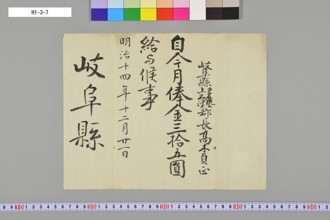 H1-3-7
岐阜縣
郡長髙木貞正
自今月俸金三拾五圓
給与候事
明治十四年十二月廿一日
岐阜縣